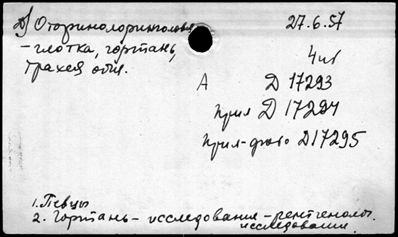 Д) Оториноларингология 27.6.57
- глотка, гортань,
трахея общ. 4 шт
А Д 17293
Прил Д 17294
Прил-фото Д17295
1. Певцы
2. Гортань - исследования - рентгенолог.
исследования.